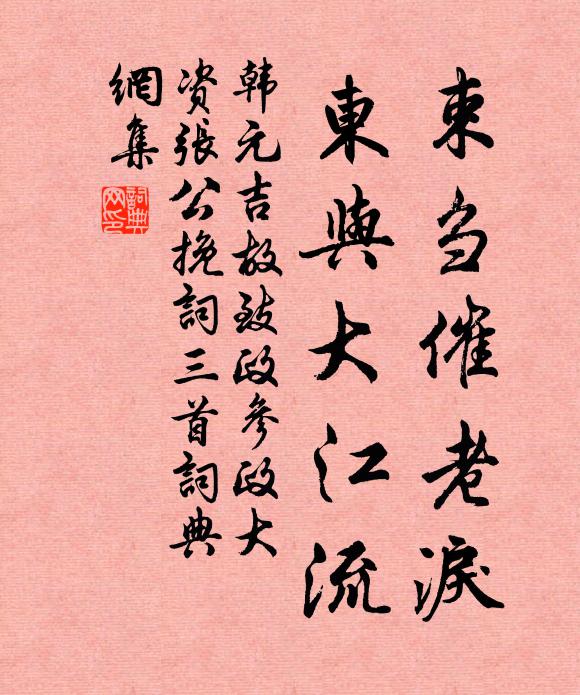 束刍催老淚
東與大江流
韩元吉故致政參政大
资張公挽詞三首詞典
網集
詞典
网印